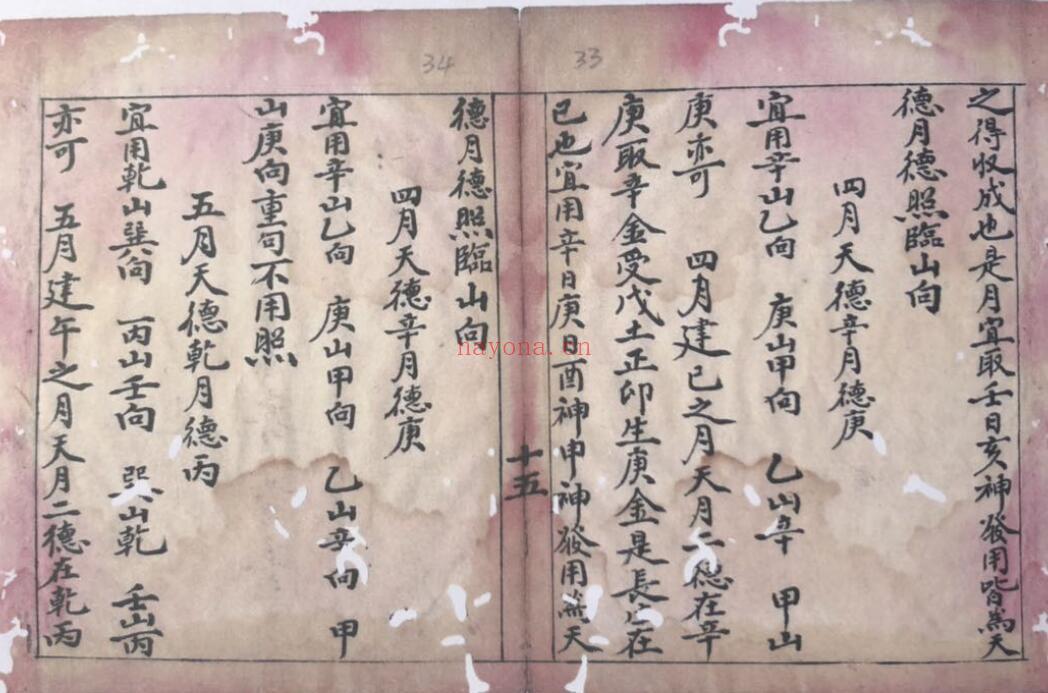 33
之得収成也是月宜取壬日亥神發用皆為天
德月德照臨山向
四月天德辛月德庚
宜用辛山乙向　庚山甲向　乙山辛　甲山
庚亦可　四月建巳之月天月二德在辛
庚取辛金受戊土正印生庚金是長在
巳也宜用辛日庚日酉神申神發用為天
十五
34
德月德照臨山向
四月天德辛月德庚
宜用辛山乙向　庚山甲向　乙山辛向　甲
山庚向重句不用照
五月天德乾月德丙
宜用乾山巽向　丙山壬向　巽山乾　壬山丙
亦可　五月建午之月天月二德在乾丙
nayona.cn